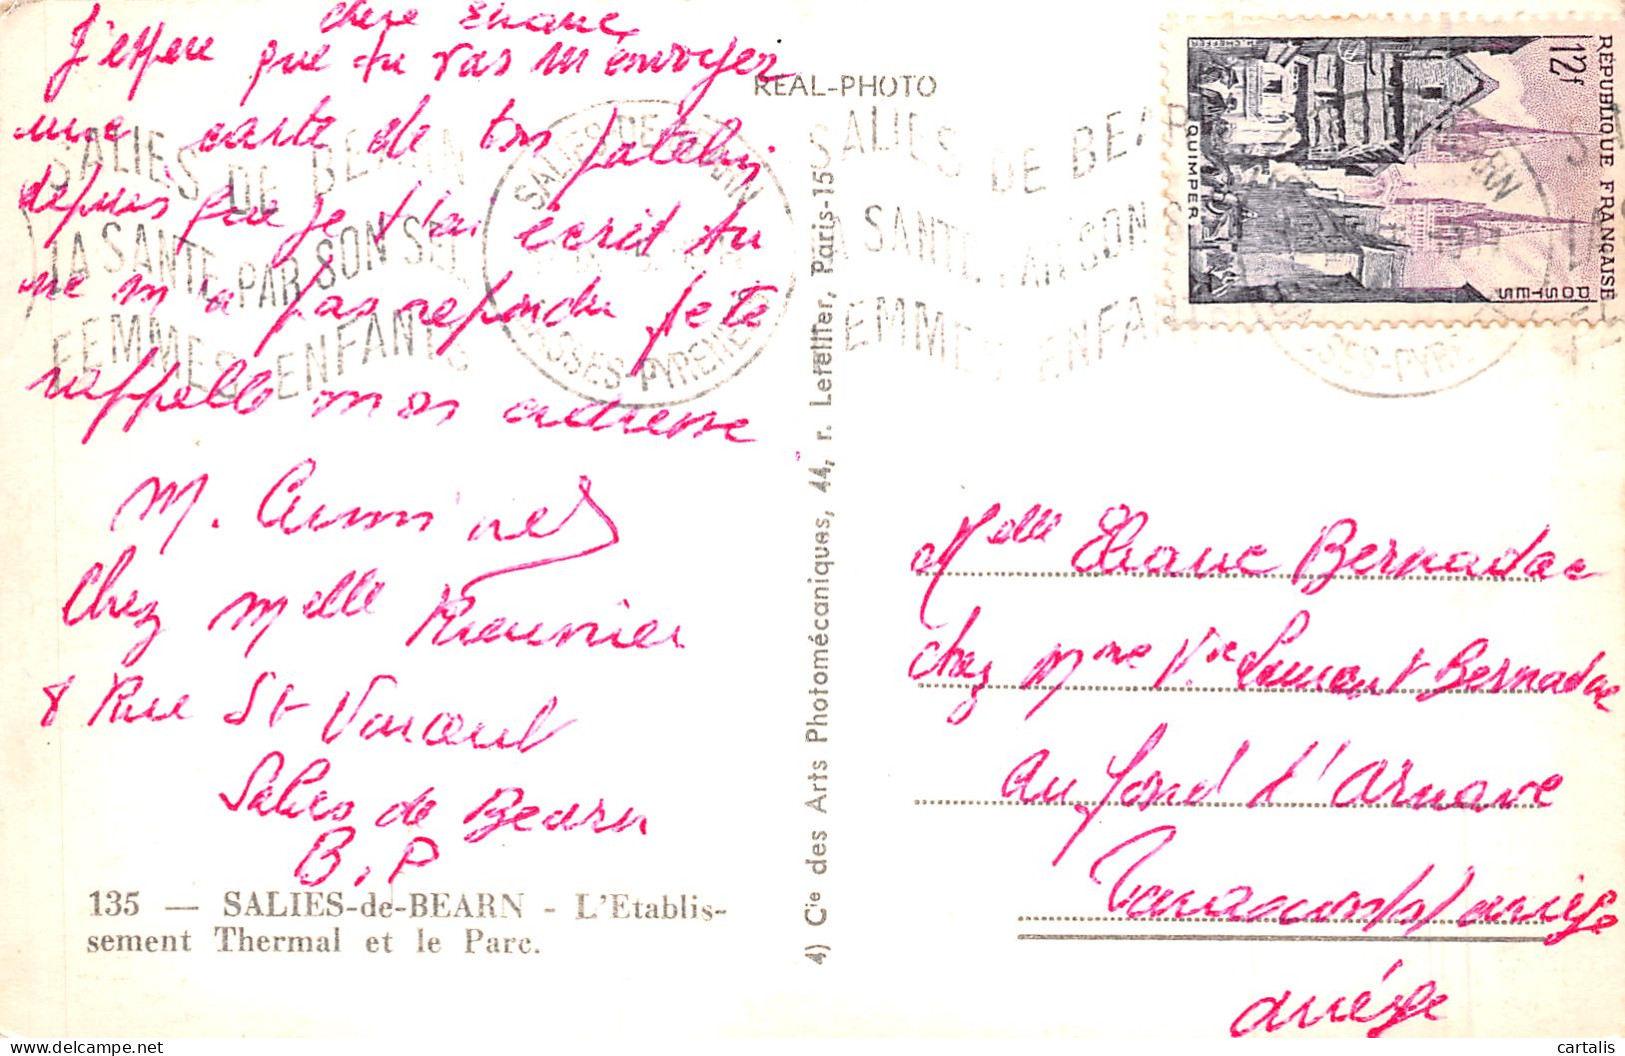 chère Eliane
J'espere que tu vas m'envoyer
une carte de ton patelin
depuis que je t'ai écrit tu
ne m'a pas repondu je te
rappelle mon adresse
M.
Chez Melle Meunier
8 Rue St Vincent
Salies de Bearn
B.P
135 — SALIES-de-BEARN - L'Etablis-
sement Thermal et le Parc.
REAL-PHOTO
SALIES DE BEARN
LA SANTE PAR SON SEL
FEMMES ENFANTS
SALIES-DE-BEARN
BASSES-PYRENEES
4) Cie des Arts Photomécaniques, 44, r. Letellier, Paris-15e
SALIES DE BEA
LA SANTE PAR SON
FEMMES ENFA
BASSES-PYRE
RÉPUBLIQUE FRANÇAISE
12f
POSTES
QUIMPER
H. CHEFFER
Melle Eliane Bernadac
chez Mme Vve Laurent Bernadac
au fond d'Arnave
Tarascon s/ ariège
ariége
cartalis